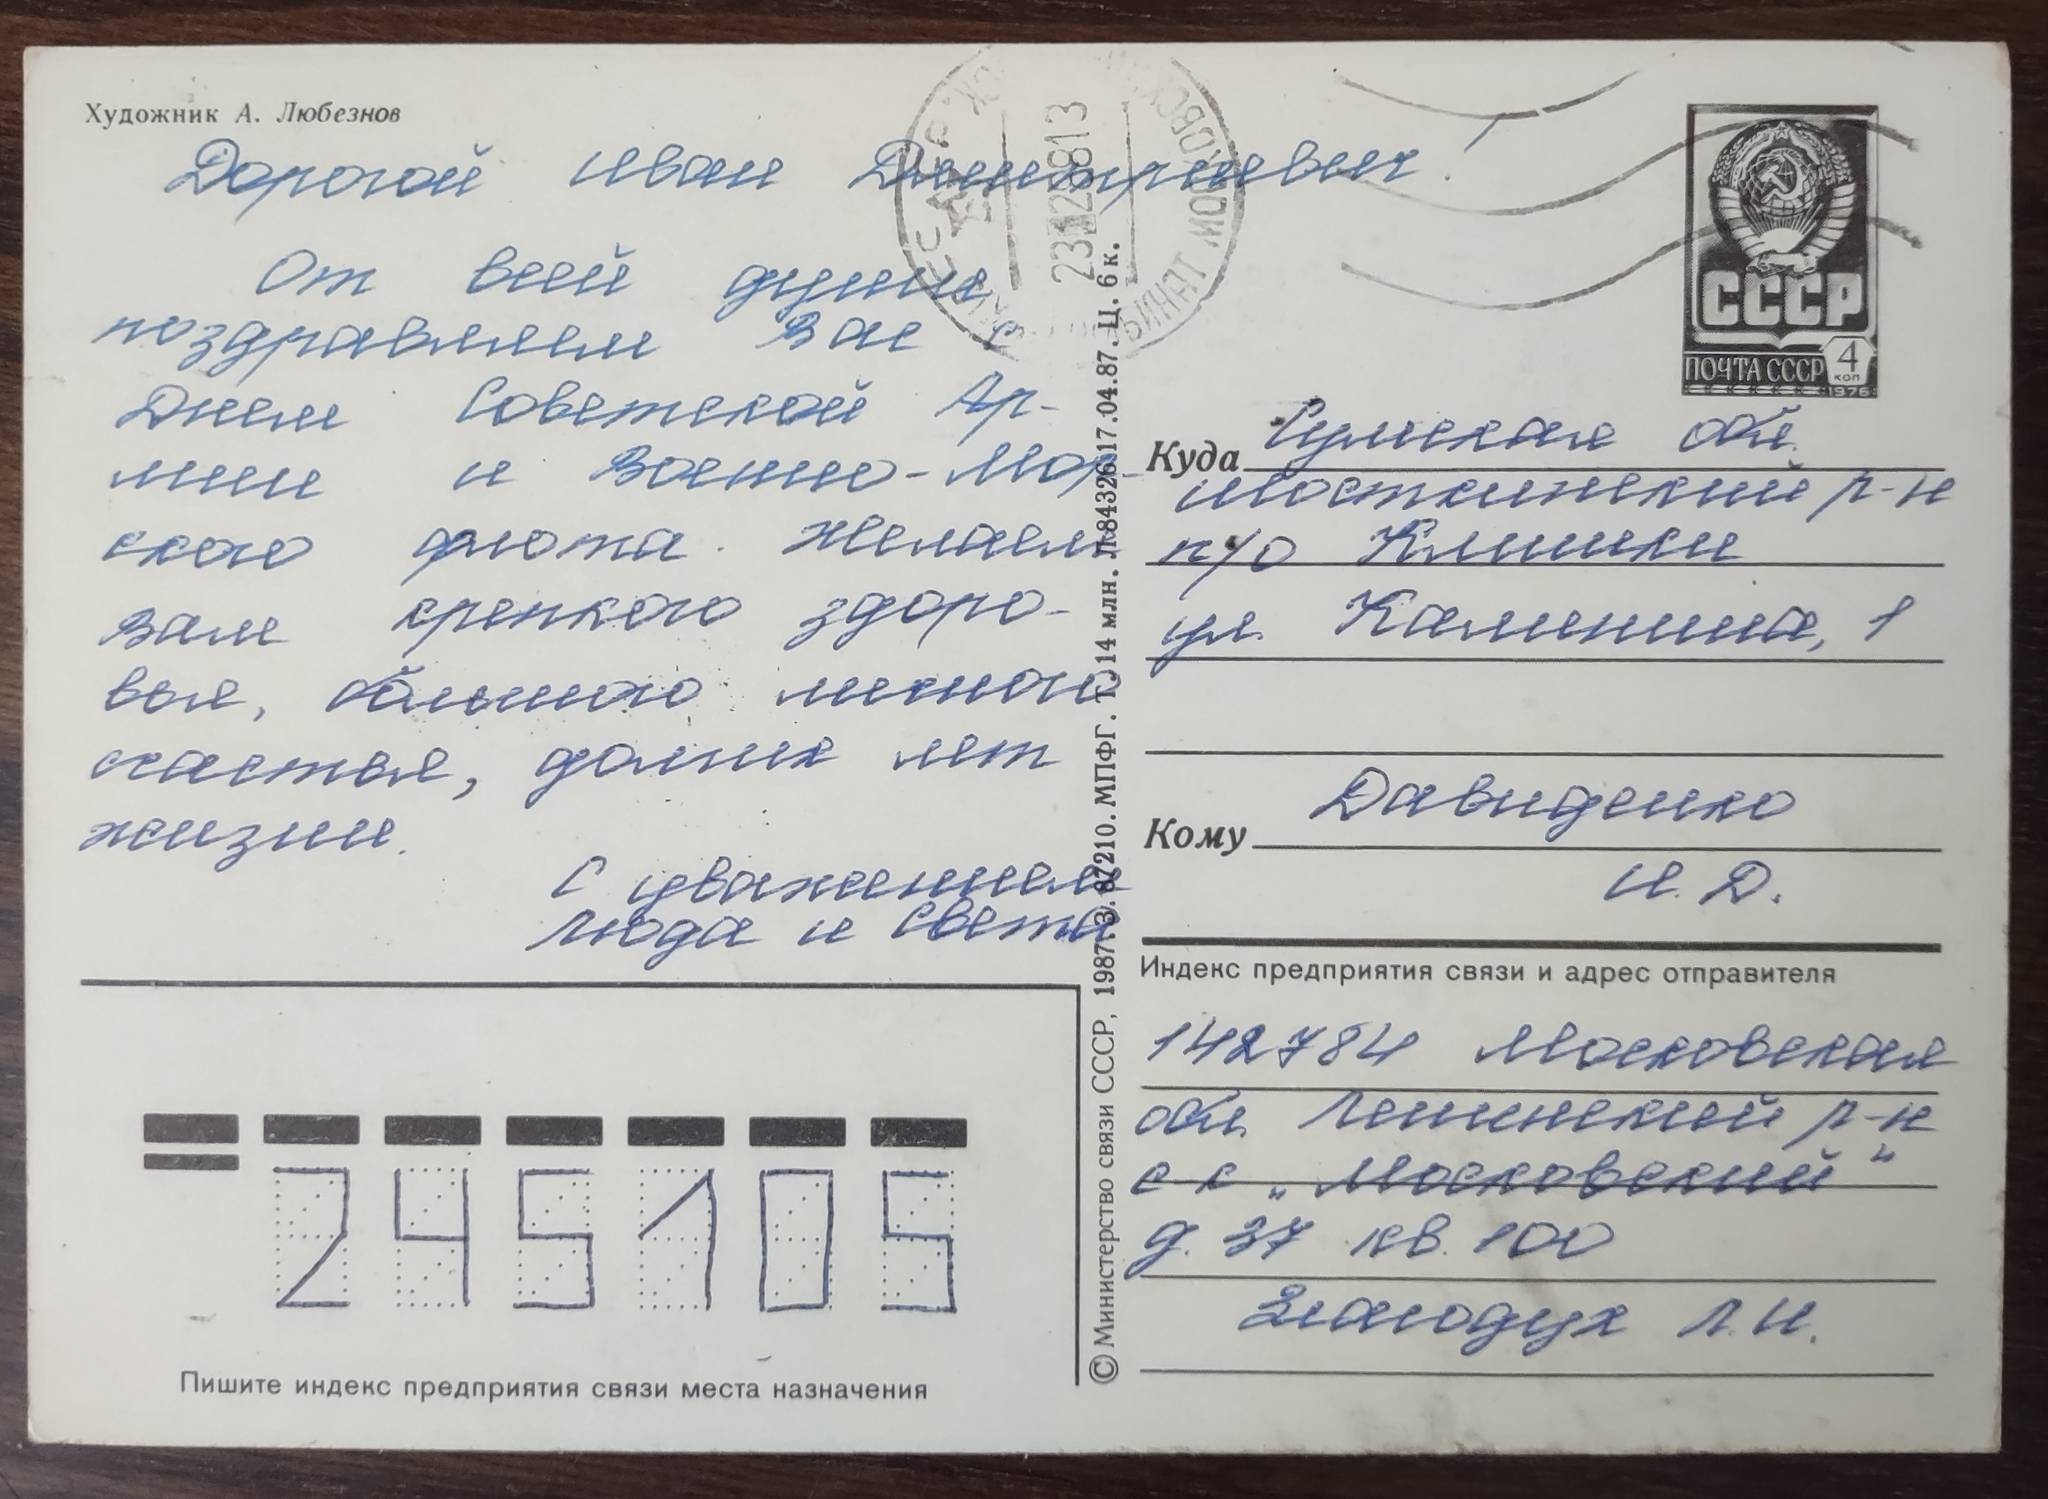 Художник А. Любезнов
Дорогой Иван Дмитриевич!
От всей души
поздравляем Вас с
Днем Советской Ар-
мии и Военно-Мор-
ского флота. Желаем
Вам крепкого здоро-
вья, большого личного
счастья, долгих лет
жизни.
С уважением
Люда и Света
Пишите индекс предприятия связи места назначения
245105
© Министерство связи СССР, 1987. З. 87210. МПФГ. Т. 14 млн. Л-84326. 17.04.87. Ц. 6 к.
23 12 88 13
СССР
ПОЧТА СССР 4 коп
1976
Куда Сумская обл.
Шосткинский р-н
п/о Клишки
ул. Калинина, 1
Кому Давиденко
И. Д.
Индекс предприятия связи и адрес отправителя
142784 Московская
обл. Ленинский р-н
с-к „Московский"
д. 37 кв. 100
Л. И.